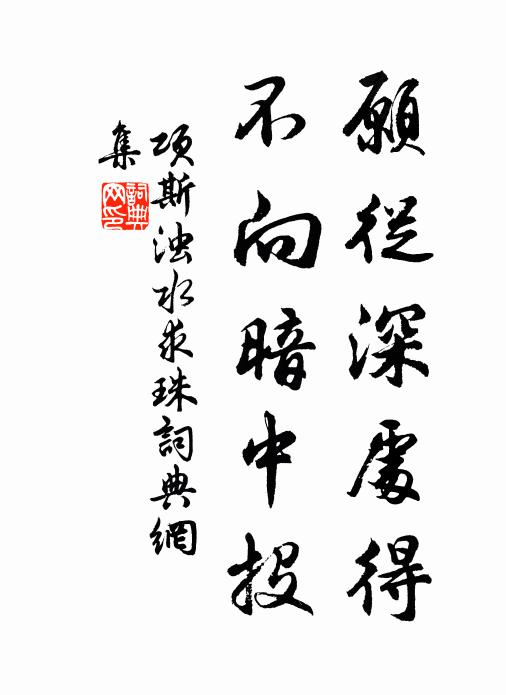 願從深處得
不向暗中投
項斯浊水求珠詞典網
集
詞典网印